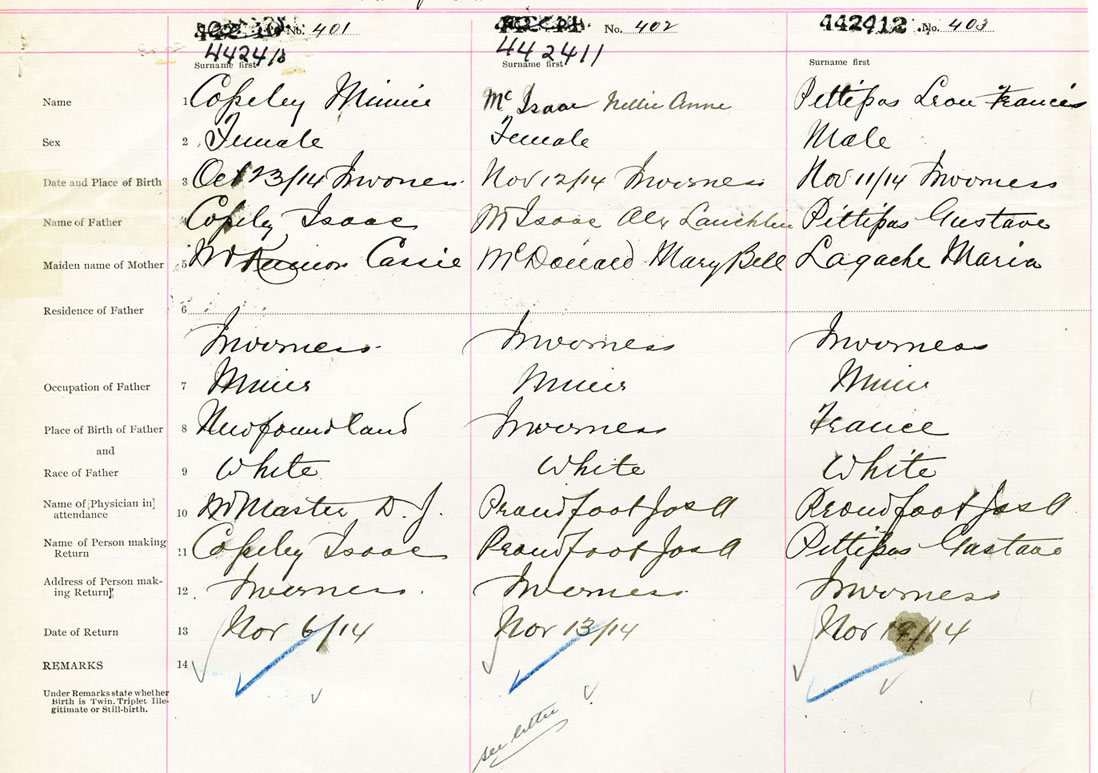 No. 401 No. 402 442412 No. 403
442410 442411
Surname first Surname first Surname first
Name 1 Copeley Minnie Mc Isaac Nellie Anne Pettipas Leon Francis
Sex 2 Female Female Male
Date and Place of Birth 3 Oct 23/14 Inverness Nov 12/14 Inverness Nov 11/14 Inverness
Name of Father 4 Copely Isaac McIsaac Alex Lauchlin Pittipas Gustave
Maiden name of Mother 5 McKinnon Cassie McDonald Mary Bell Lagache Maria
Residence of Father 6
Inverness Inverness Inverness
Occupation of Father 7 Miner Miner Miner
Place of Birth of Father 8 Newfoundland Inverness France
and
Race of Father 9 White White White
Name of Physician in 10 McMaster D. J. Proudfoot Jos A Proudfoot Jos A
attendance
Name of Person making 11 Copeley Isaac Proudfoot Jos A Pettipas Gustave
Return
Address of Person mak- 12 Inverness. Inverness Inverness
ing Return
Date of Return 13 Nov 6/14 Nov 13/14 Nov 19/14
REMARKS 14
Under Remarks state whether
Birth is Twin, Triplet Ille-
gitimate or Still-birth.
see letter